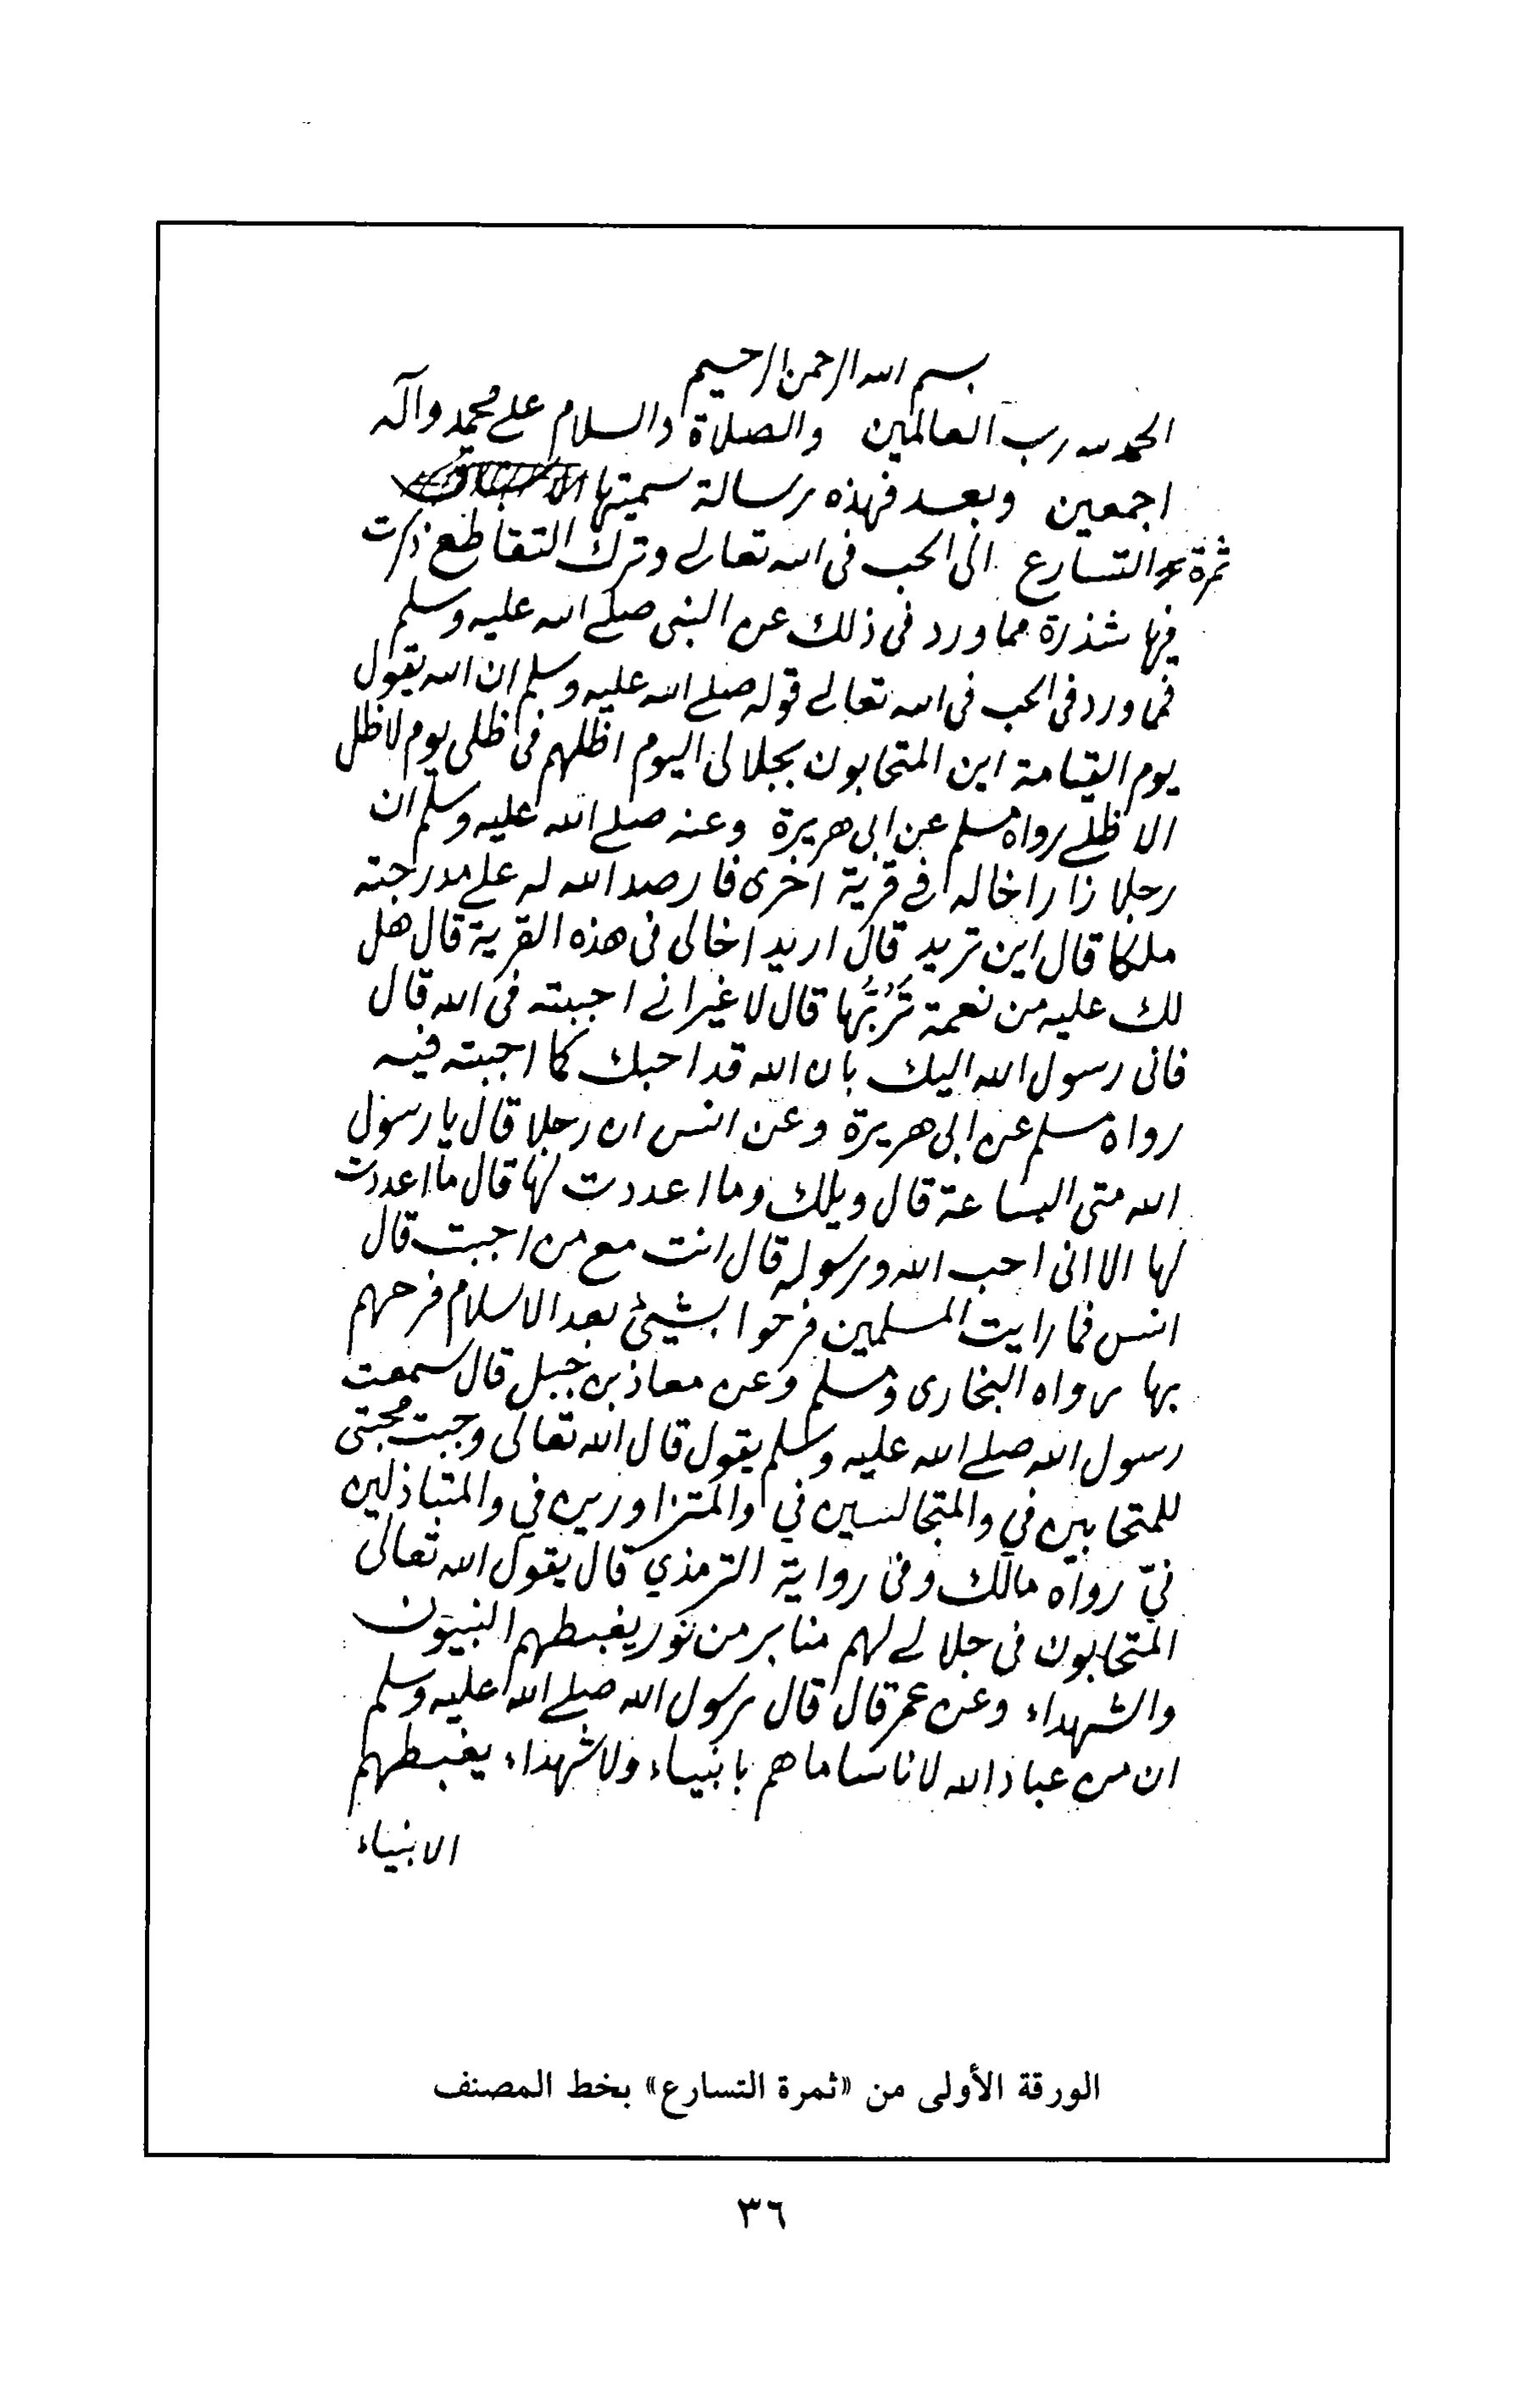 بسم الله الرحمن الرحيم
الحمد لله رب العالمين والصلاة والسلام على محمد وآله
اجمعين وبعد فهذه رسالة سميتها
ثمرة التسارع الى الحب فى الله تعالى وترك التقاطع ذكرت
فيها شذرة مما ورد فى ذلك عن النبى صلى الله عليه وسلم
فما ورد فى الحب فى الله تعالى قوله صلى الله عليه وسلم ان الله يقول
يوم القيامة اين المتحابون بجلالى اليوم اظلهم فى ظلى يوم لا ظل
الا ظلى رواه مسلم عن ابى هريرة وعنه صلى الله عليه وسلم ان
رجلا زار اخا له فى قرية اخرى فارصد الله له على مدرجته
ملكا قال اين تريد قال اريد اخا لى فى هذه القرية قال هل
لك عليه من نعمة تَرُبُّها قال لا غير انى احببته فى الله قال
فانى رسول الله اليك بان الله قد احبك كما احببته فيه
رواه مسلم عن ابى هريرة وعن انس ان رجلا قال يا رسول
الله متى الساعة قال ويلك وما اعددت لها قال ما اعددت
لها الا انى احب الله ورسوله قال انت مع من احببت قال
انس فما رايت المسلمين فرحوا بشيئ بعد الاسلام فرحهم
بها رواه البخارى ومسلم وعن معاذ بن جبل قال سمعت
رسول الله صلى الله عليه وسلم يقول قال الله تعالى وجبت محبتى
للمتحابين في والمتجالسين في والمتزاورين في والمتباذلين
فيّ رواه مالك وفى رواية الترمذي قال يقول الله تعالى
المتحابون فى جلالى لهم منابر من نور يغبطهم النبيون
والشهداء وعن عمر قال قال رسول الله صلى الله عليه وسلم
ان من عباد الله لاناسا ما هم بانبياء ولا شهداء يغبطهم
الانبياء
الورقة الأولى من «ثمرة التسارع» بخط المصنف
٣٦